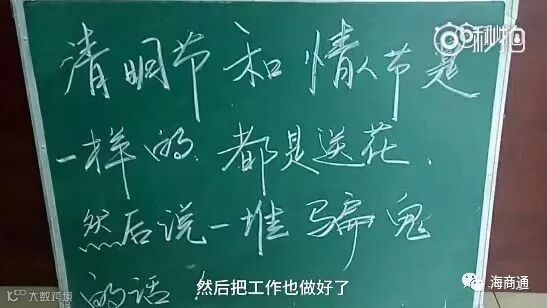 秒拍
清明节和情人节是
一样的.都是送花.
然后说一堆骗鬼
的话!
然后把工作也做好了
大数跨境
海商通